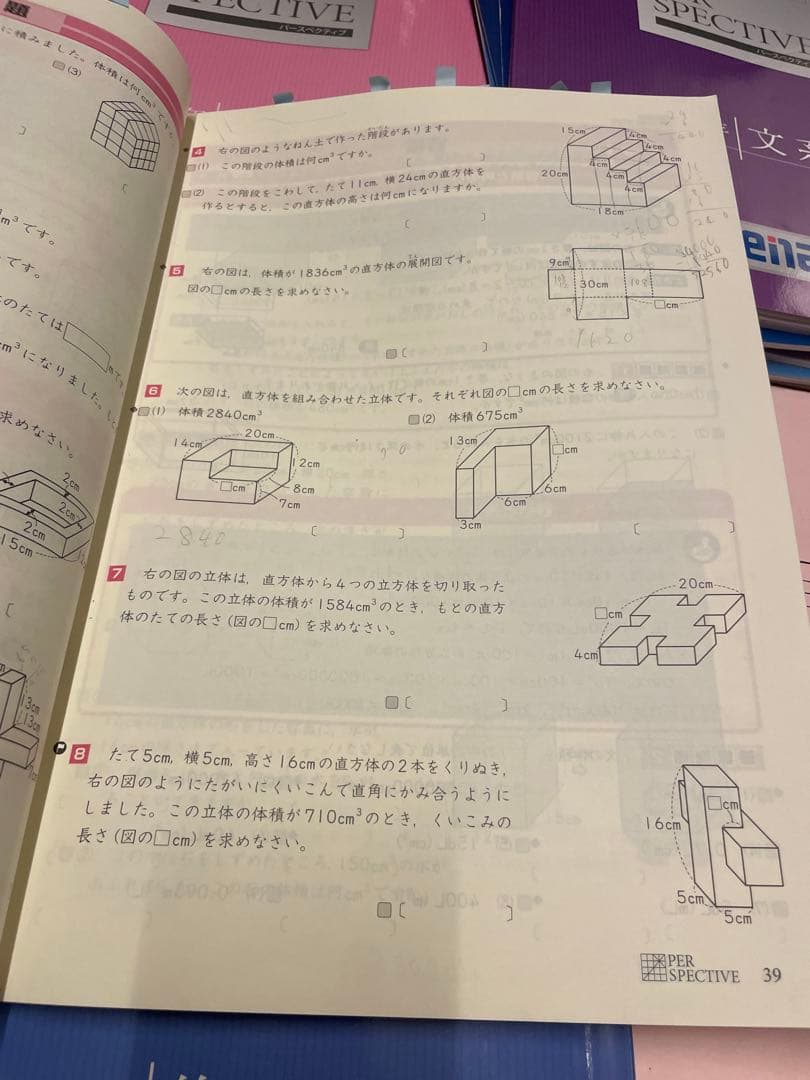 SPECTIVE
パースペクティブ
PER
SPECTIVE
パースペクティブ
文系
ena
題
に積みました。体積は何cm³ですか
(3)
cm³です。
です。
のたては□m
cm³になりました。
求めなさい。
2cm
2cm
2cm
15cm
13cm
13cm
4 右の図のようなねん土で作った階段があります。
かいだん
(1) この階段の体積は何cm³ですか。
〔 〕
(2) この階段をこわして，たて11cm，横24cmの直方体を
作るとすると，この直方体の高さは何cmになりますか。
〔 〕
15cm
4cm
4cm
4cm
4cm
4cm
4cm
20cm
18cm
5 右の図は，体積が1836cm³の直方体の展開図です。
図の□cmの長さを求めなさい。
〔 〕
9cm
30cm
□cm
1620
6 次の図は，直方体を組み合わせた立体です。それぞれ図の□cmの長さを求めなさい。
(1) 体積2840cm³
(2) 体積675cm³
20cm
14cm
12cm
□cm
8cm
7cm
〔 〕
2840
13cm
□cm
6cm
6cm
3cm
〔 〕
7 右の図の立体は，直方体から4つの立方体を切り取った
ものです。この立体の体積が1584cm³のとき，もとの直方
体のたての長さ（図の□cm）を求めなさい。
〔 〕
20cm
□cm
4cm
8 たて5cm，横5cm，高さ16cmの直方体の2本をくりぬき，
右の図のようにたがいにくいこんで直角にかみ合うように
しました。この立体の体積が710cm³のとき，くいこみの
長さ（図の□cm）を求めなさい。
〔 〕
□cm
16cm
5cm
5cm
PER
SPECTIVE 39